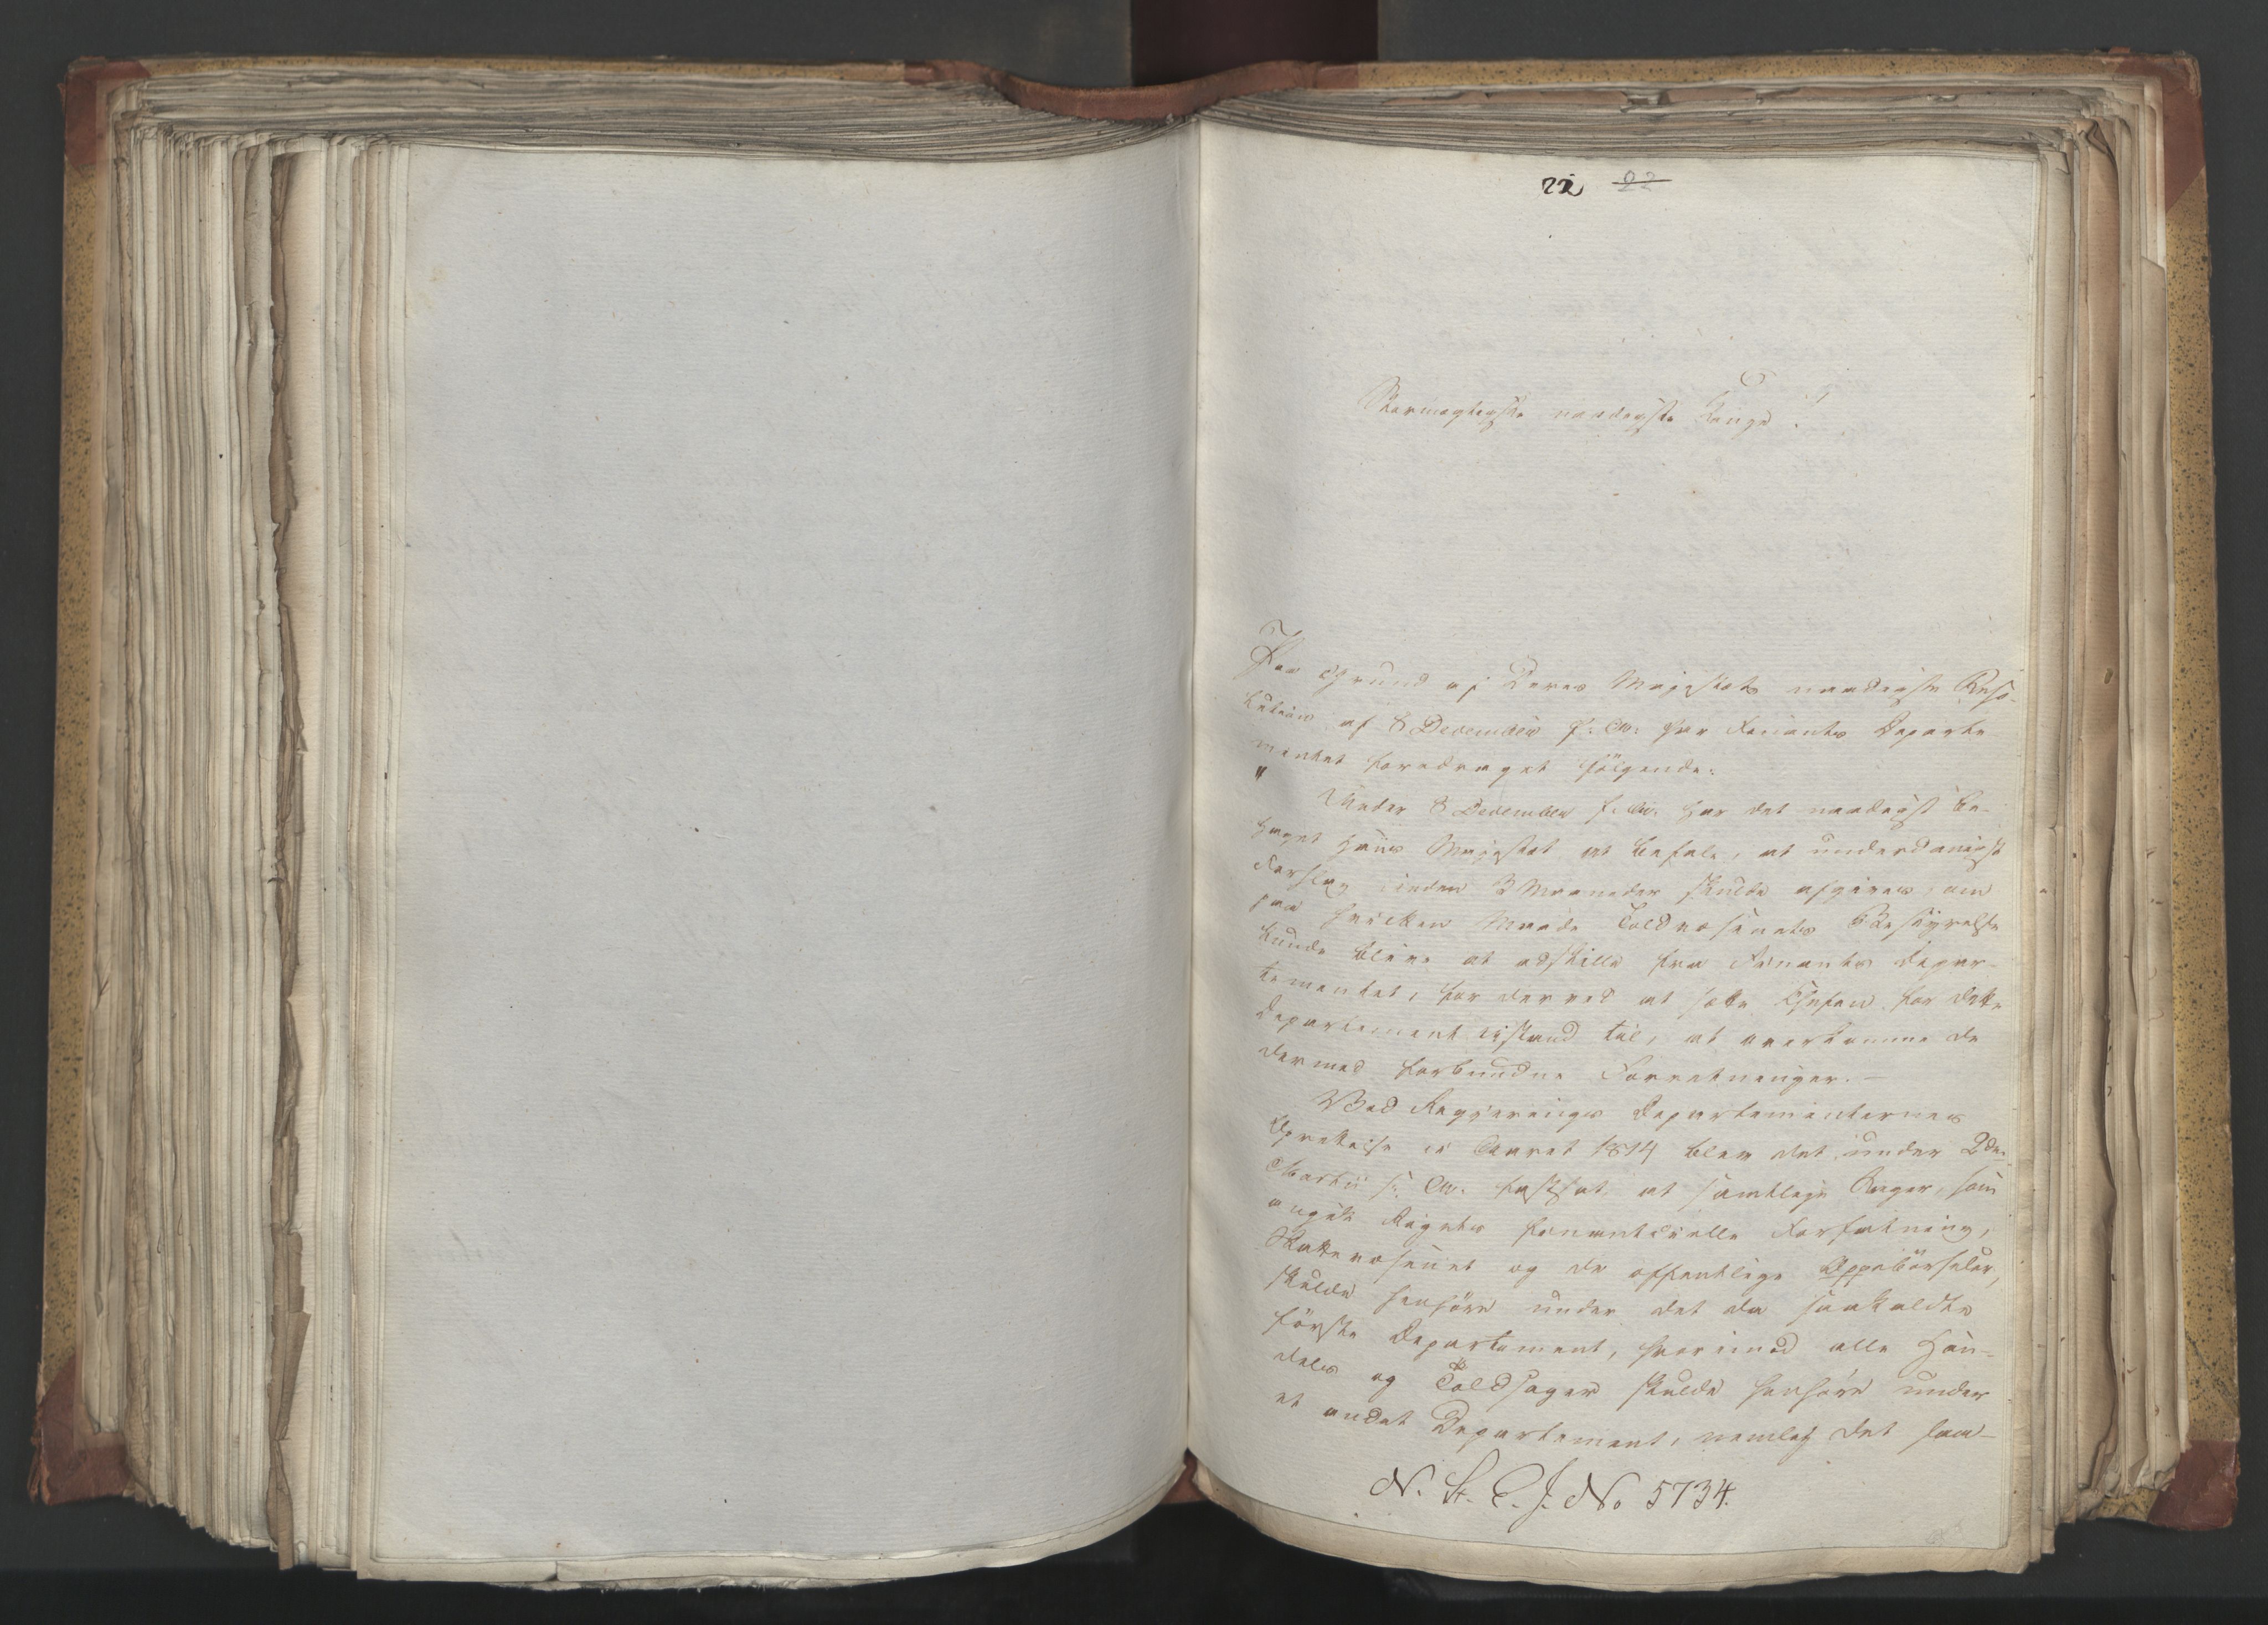 22 22
Stormægtigste naadigste Konge!
Paa Grund af Deres Majestæts naadigste Reso-
lution af 8 December f: A: har Finants Departe
mentet foredraget følgende:
" Under 8 December f. A: har det naadigst be-
haget Hans Majestæt at befale, at underdanigst
Forslag inden 3 Maaneder skulde afgives, om
paa hvilken Maade Toldvæsenets Bestyrelse
kunde blive at adskille fra Finants Depar-
tementet, for derved at sætte Chefen for dette
Departement istand til, at overkomme de
dermed forbundne Forretninger. —
Ved Regjerings Departementernes
Oprettelse i Aaret 1814 blev det under 2den
Martii s: A. fastsat, at samtlige Sager, som
angik Rigets finantsielle Forfatning,
Skattevæsenet og de offentlige Oppebørseler,
skulde henhøre under det da saakaldte
første Departement, hvorimod alle Han-
dels og Toldsager skulde henhøre under
et andet Departement, nemlig det saa-
N. St. C. J. No 5734.